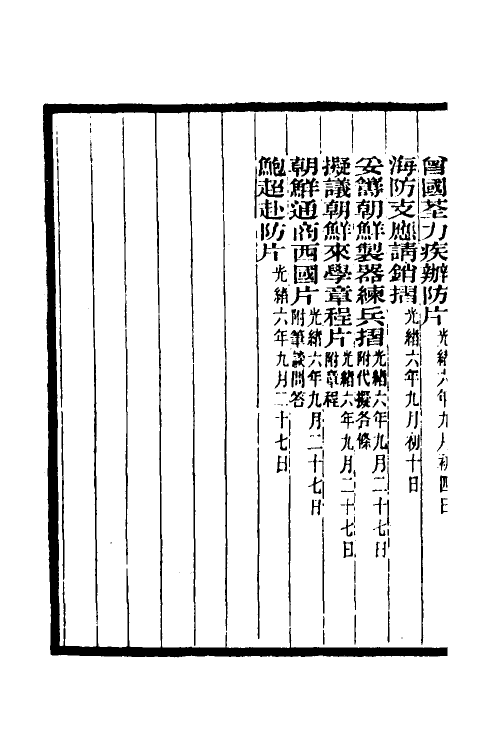 曾國荃力疾辦防片光緒六年九月初四日
海防支應請銷摺光緒六年九月初十日
妥籌朝鮮製器練兵摺光緒六年九月二十七日附代擬各條
擬議朝鮮來學章程片光緒六年九月二十七日附章程
朝鮮通商西國片光緒六年九月二十七日附筆談問答
鮑超赴防片光緒六年九月二十七日